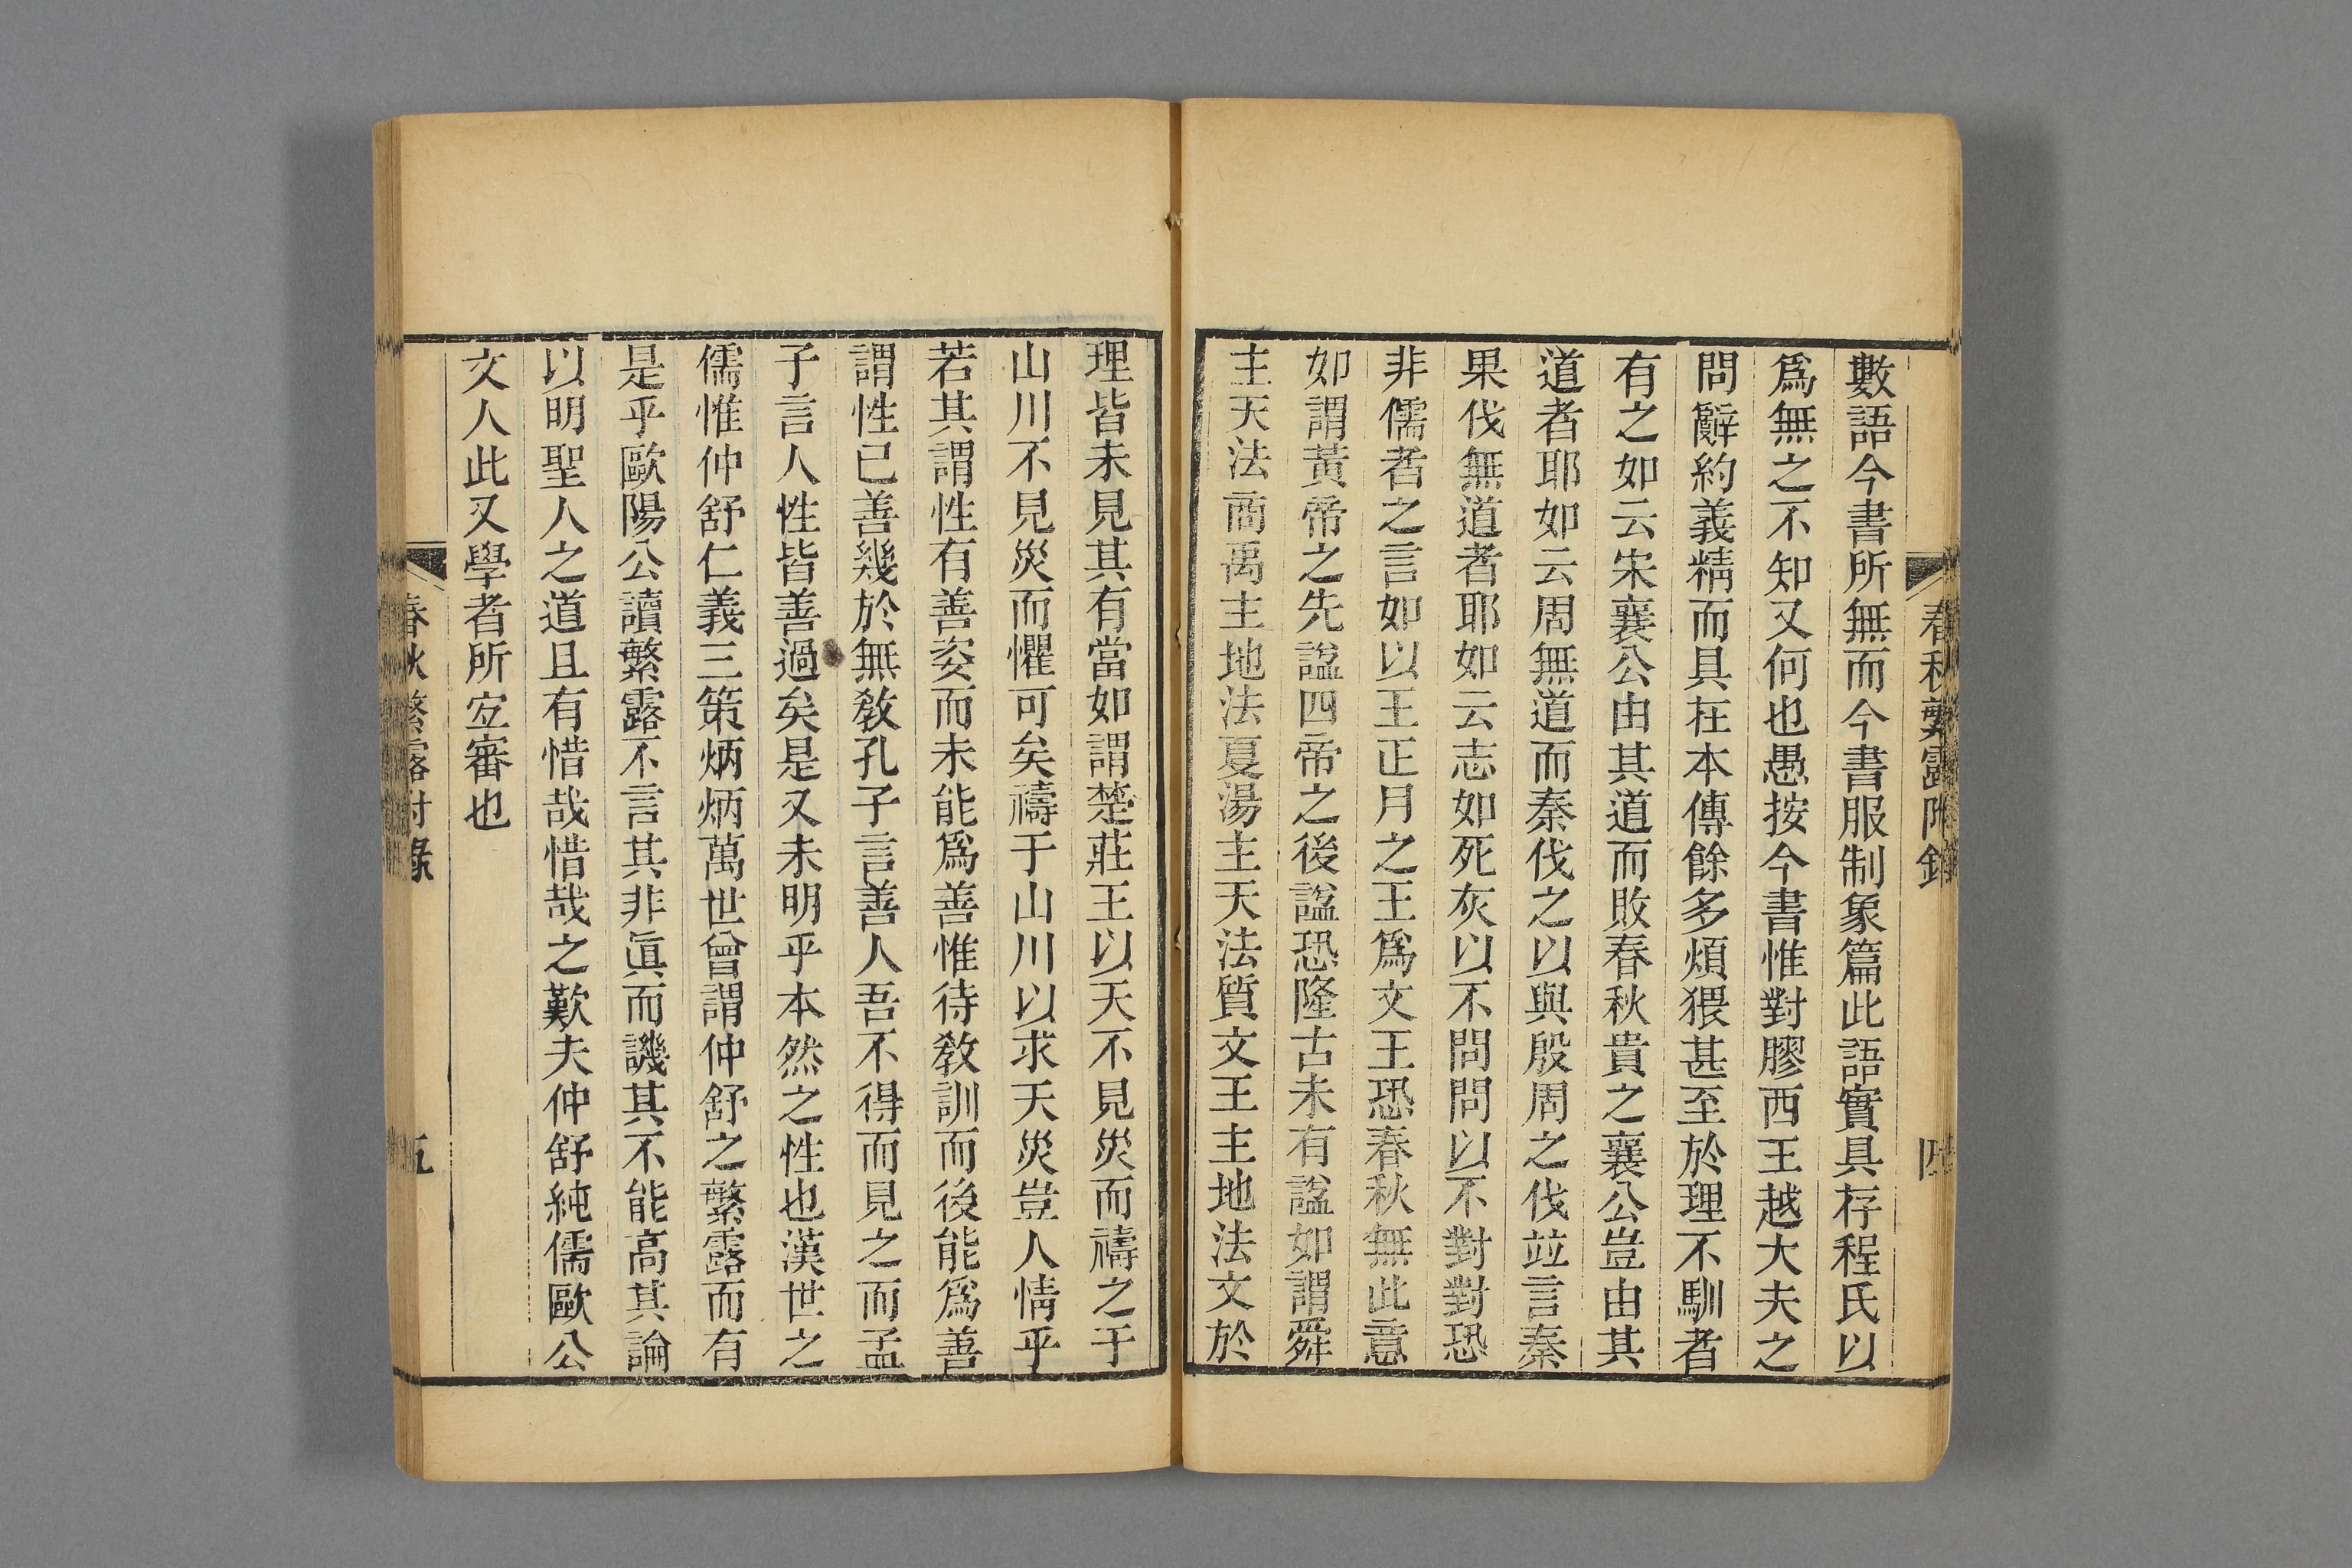 春秋繁露附錄
四
數語今書所無而今書服制象篇此語實具存程氏以
爲無之不知又何也愚按今書惟對膠西王越大夫之
問辭約義精而具在本傳餘多煩猥甚至於理不馴者
有之如云宋襄公由其道而敗春秋貴之襄公豈由其
道者耶如云周無道而秦伐之以與殷周之伐竝言秦
果伐無道者耶如云志如死灰以不問問以不對對恐
非儒者之言如以王正月之王爲文王恐春秋無此意
如謂黃帝之先諡四帝之後諡恐隆古未有諡如謂舜
主天法商禹主地法夏湯主天法質文王主地法文於
理皆未見其有當如謂楚莊王以天不見災而禱之于
山川不見災而懼可矣禱于山川以求天災豈人情乎
若其謂性有善姿而未能爲善惟待敎訓而後能爲善
謂性已善幾於無敎孔子言善人吾不得而見之而孟
子言人性皆善過矣是又未明乎本然之性也漢世之
儒惟仲舒仁義三策炳炳萬世曾謂仲舒之繁露而有
是乎歐陽公讀繁露不言其非眞而譏其不能高其論
以明聖人之道且有惜哉惜哉之歎夫仲舒純儒歐公
文人此又學者所宐審也
春秋繁露附錄
五